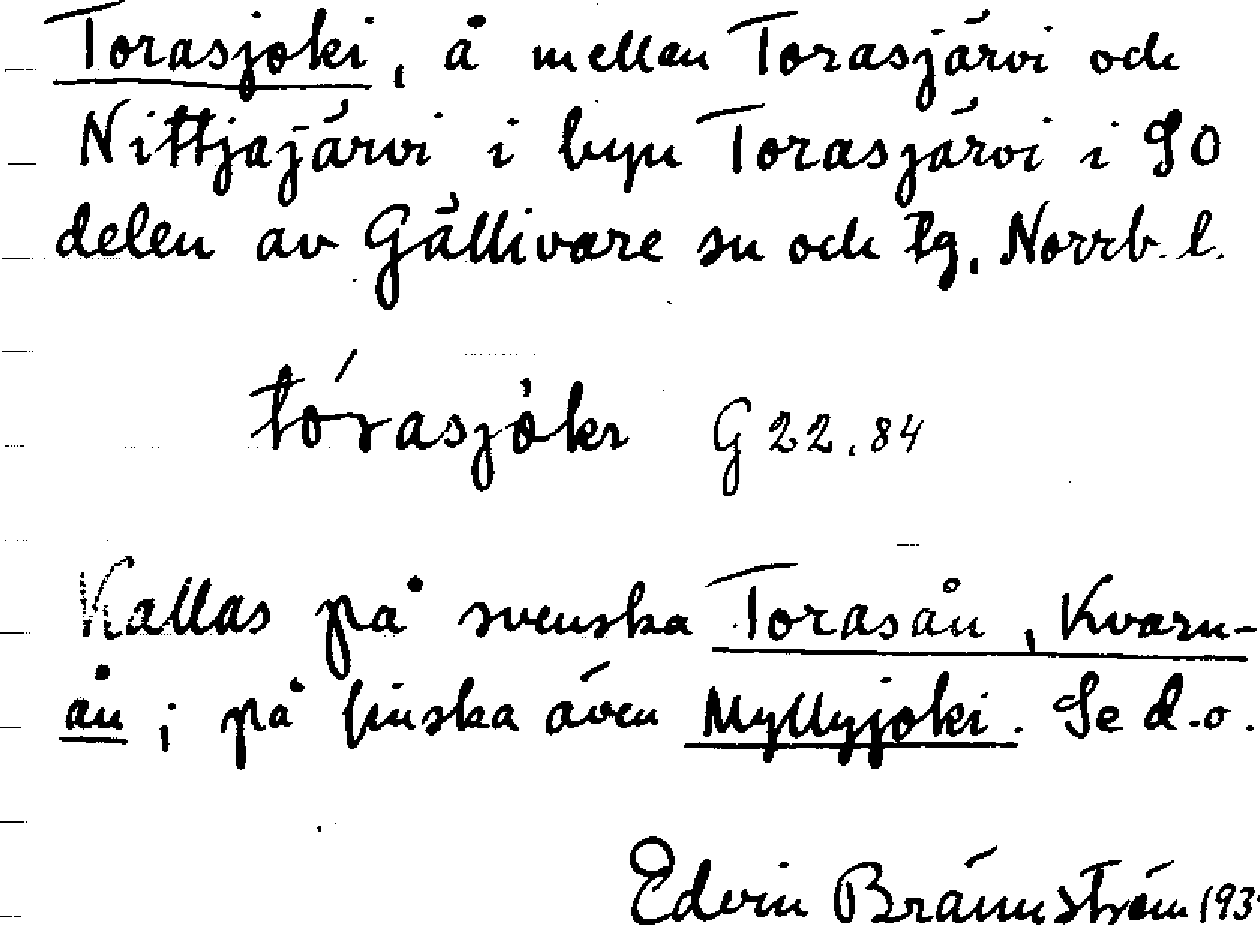 Torasjoki, å mellan Torasjärvi och
Nittjajärvi i byn Torasjärvi i SO
delen av Gällivare sn och tg, Norrb. l.
tórasjòkı G 22.84
Kallas på svenska Torasån, Kvarn-
ån; på finska även Myllyjoki. Se d.o.
Edvin Brännström 193